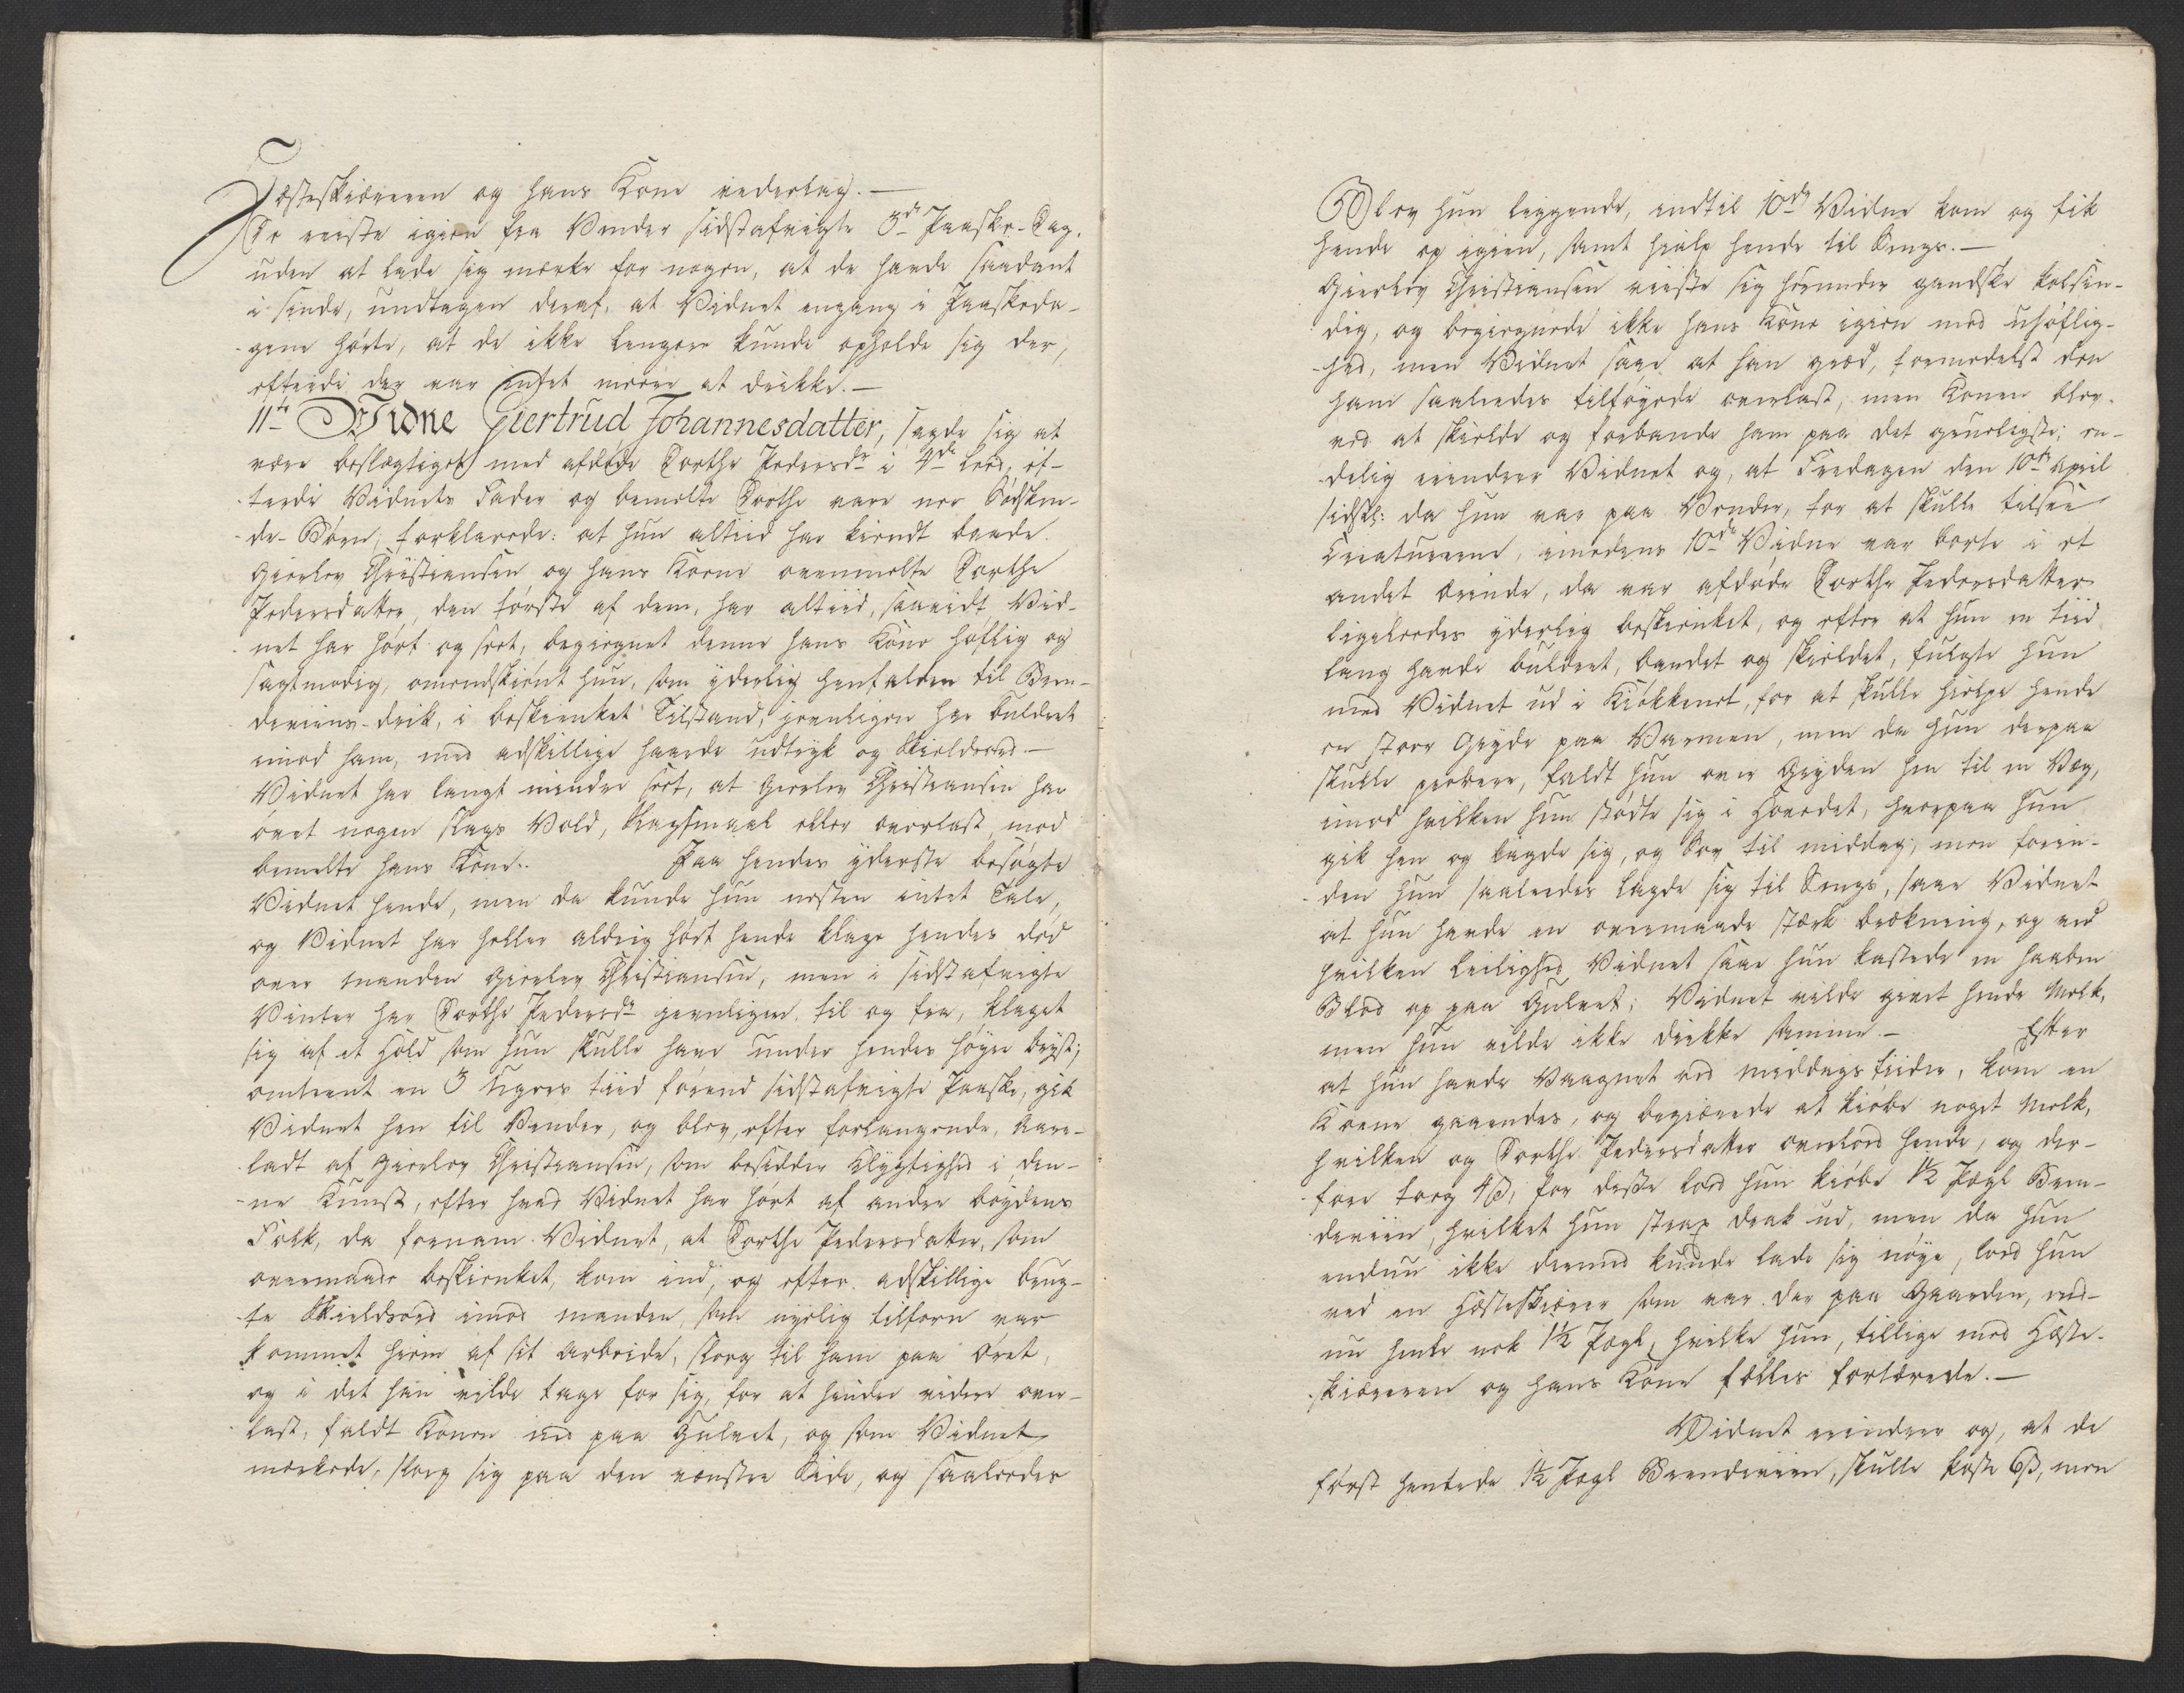 Hæsteskiæreren og hans Kone vederlag. —
De reiste igien fra Vinder sidstafvigte 3de Paaske-Dag,
uden at lade sig mærke for nogen, at de havde saadant
i sinde, undtagen deraf, at Vidnet engang i Paaskeda-
gene hørte, at de ikke længere kunde opholde sig der,
efterdi der var intet meere at drikke. —
11te Vidne Giertrud Johannesdatter, sagde sig at
være beslægtiget med afdøde Dorthe Pedersdr i 4de Leed, ef-
terdi Vidnets Fader og bemelte Dorthe vare ner Sødsken-
de-Børn, forklarede: at hun altiid har kiendt baade
Gierlov Christiansen og hans Koene ovenmelte Dorthe
Pedersdatter, den første af dem, har altiid, saavidt Vid-
net har hørt og seet, begiegnet denne hans Kone høflig og
sagtmodig, omendskiønt hun, som yderlig henfalden til Bren-
deviins-drik, i beskienket Tilstand, jevnligen har buldret
imod ham, med adskillige haarde udtryk og Skieldsord. —
Vidnet har langt mindre seet, at Gierlov Christiansen har
øvet nogen slags Vold, klagsmaal eller overlast mod
bemelte hans Kone. Paa hendes yderste besøgte
Vidnet hende, men da kunde hun nesten intet Tale,
og Vidnet har heller aldrig hørt hende klage hendes død
over manden Gierlov Christiansen, men i sidstafvigte
Vinter har Dorthe Pedersdr jevnligen til og fra, klaget
sig af et Hold som hun skulle have under hendes høyre bryst;
omtrent en 3 Ugers tiid førend sidstafvigte Paaske, gik
Vidnet hen til Vinder, og blev, efter forlangende, Aare-
ladt af Gierlov Christiansen, som besidder Dygtighed i den-
ne Kunst, efter hvad Vidnet har hørt af andre bøygdens
Folk, da fornam Vidnet, at Dorthe Pedersdatter, som
overmaade beskienket, kom ind, og efter adskillige brug-
te Skieldsord imod manden, som nyelig tilforn var
kommet hiem af sit arbeide, sloeg til ham paa Øret,
og i det han vilde tage for sig, for at hindre videre over-
last, faldt Konen ned paa Gulvet, og som Vidnet
mærkede, sloeg sig paa den venstre Side, og saaledes
Blev hun liggende, indtil 10de Vidne kom og fik
hende op igien, samt hialp hende til Sengs. —
Gierlov Christiansen viiste sig herunder gandske kolsin-
dig, og begiegnede ikke hans Kone igien med uhøflig-
hed, men Vidnet saae at han græd, formedelst den
ham saaledes tilføyede overlast, men Konen blev
ved at skielde og forbande ham paa det grueligste; en-
delig erindrer Vidnet og, at Fredagen den 10de April
sidstl: da hun var paa Vinder, for at skulle tilsee
Creaturerne, imedens 10de Vidne var borte i et
andet ærinde, da var afdøde Dorthe Pedersdatter
ligeleedes yderlig beskienket, og efter at hun en tiid
lang havde buldret, bandet og skieldet, fulgte hun
med Vidnet ud i Kiøkkenet, for at skulle hielpe hende
en stoer Gryde paa Varmen, men da hun derpaa
skulle probere, faldt hun over Gryden hen til en Væg,
imod hvilken hun stødte sig i Hovedet, hvorpaa hun
gik hen og lagde sig, og sov til middag, men forin-
den hun saaledes lagde sig til Sengs, saae Vidnet
at hun havde en overmaade stærk brækning, og ved
hvilken leilighed Vidnet saae hun kastede en haaben
Blod op paa Gulvet; Vidnet vilde givet hende Melk,
men hun vilde ikke drikke samme. — Efter
at hun havde Vaagnet ved middags tiider, kom en
Koene gaaendes, og begiærede at kiøbe noget Melk,
hvilken og Dorthe Pedersdatter overlod hende, og der-
fore toeg 4 ß, for disse lod hun kiøbe 1½ Pægl Bren-
deviin, hvilket hun strax drak ud, men da hun
endnu ikke dermed kunde lade sig nøye, lod hun
ved en Hæsteskiærer som var der paa Gaarden, end-
nu hente nok 1½ Pægl, hvilke hun, tillige med Hæste-
skiæreren og hans Kone fælles fortærede. —
Vidnet erindrer og, at de
først hentede 1½ Pægl Brendeviin, skulle koste 6 ß, men